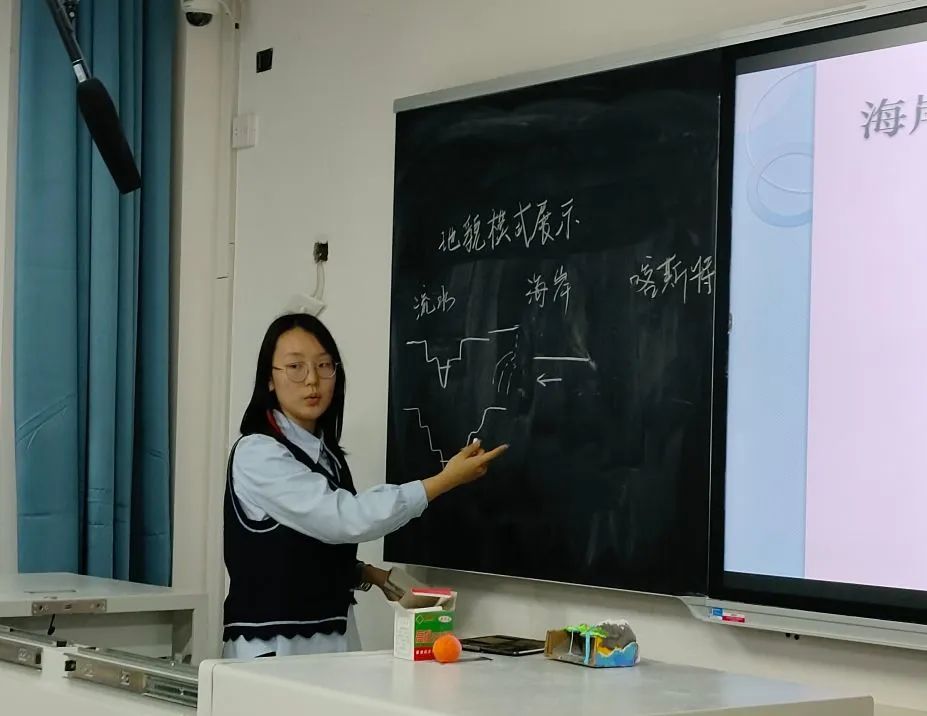 地貌模式展示
流水 海岸 喀斯特
海岸